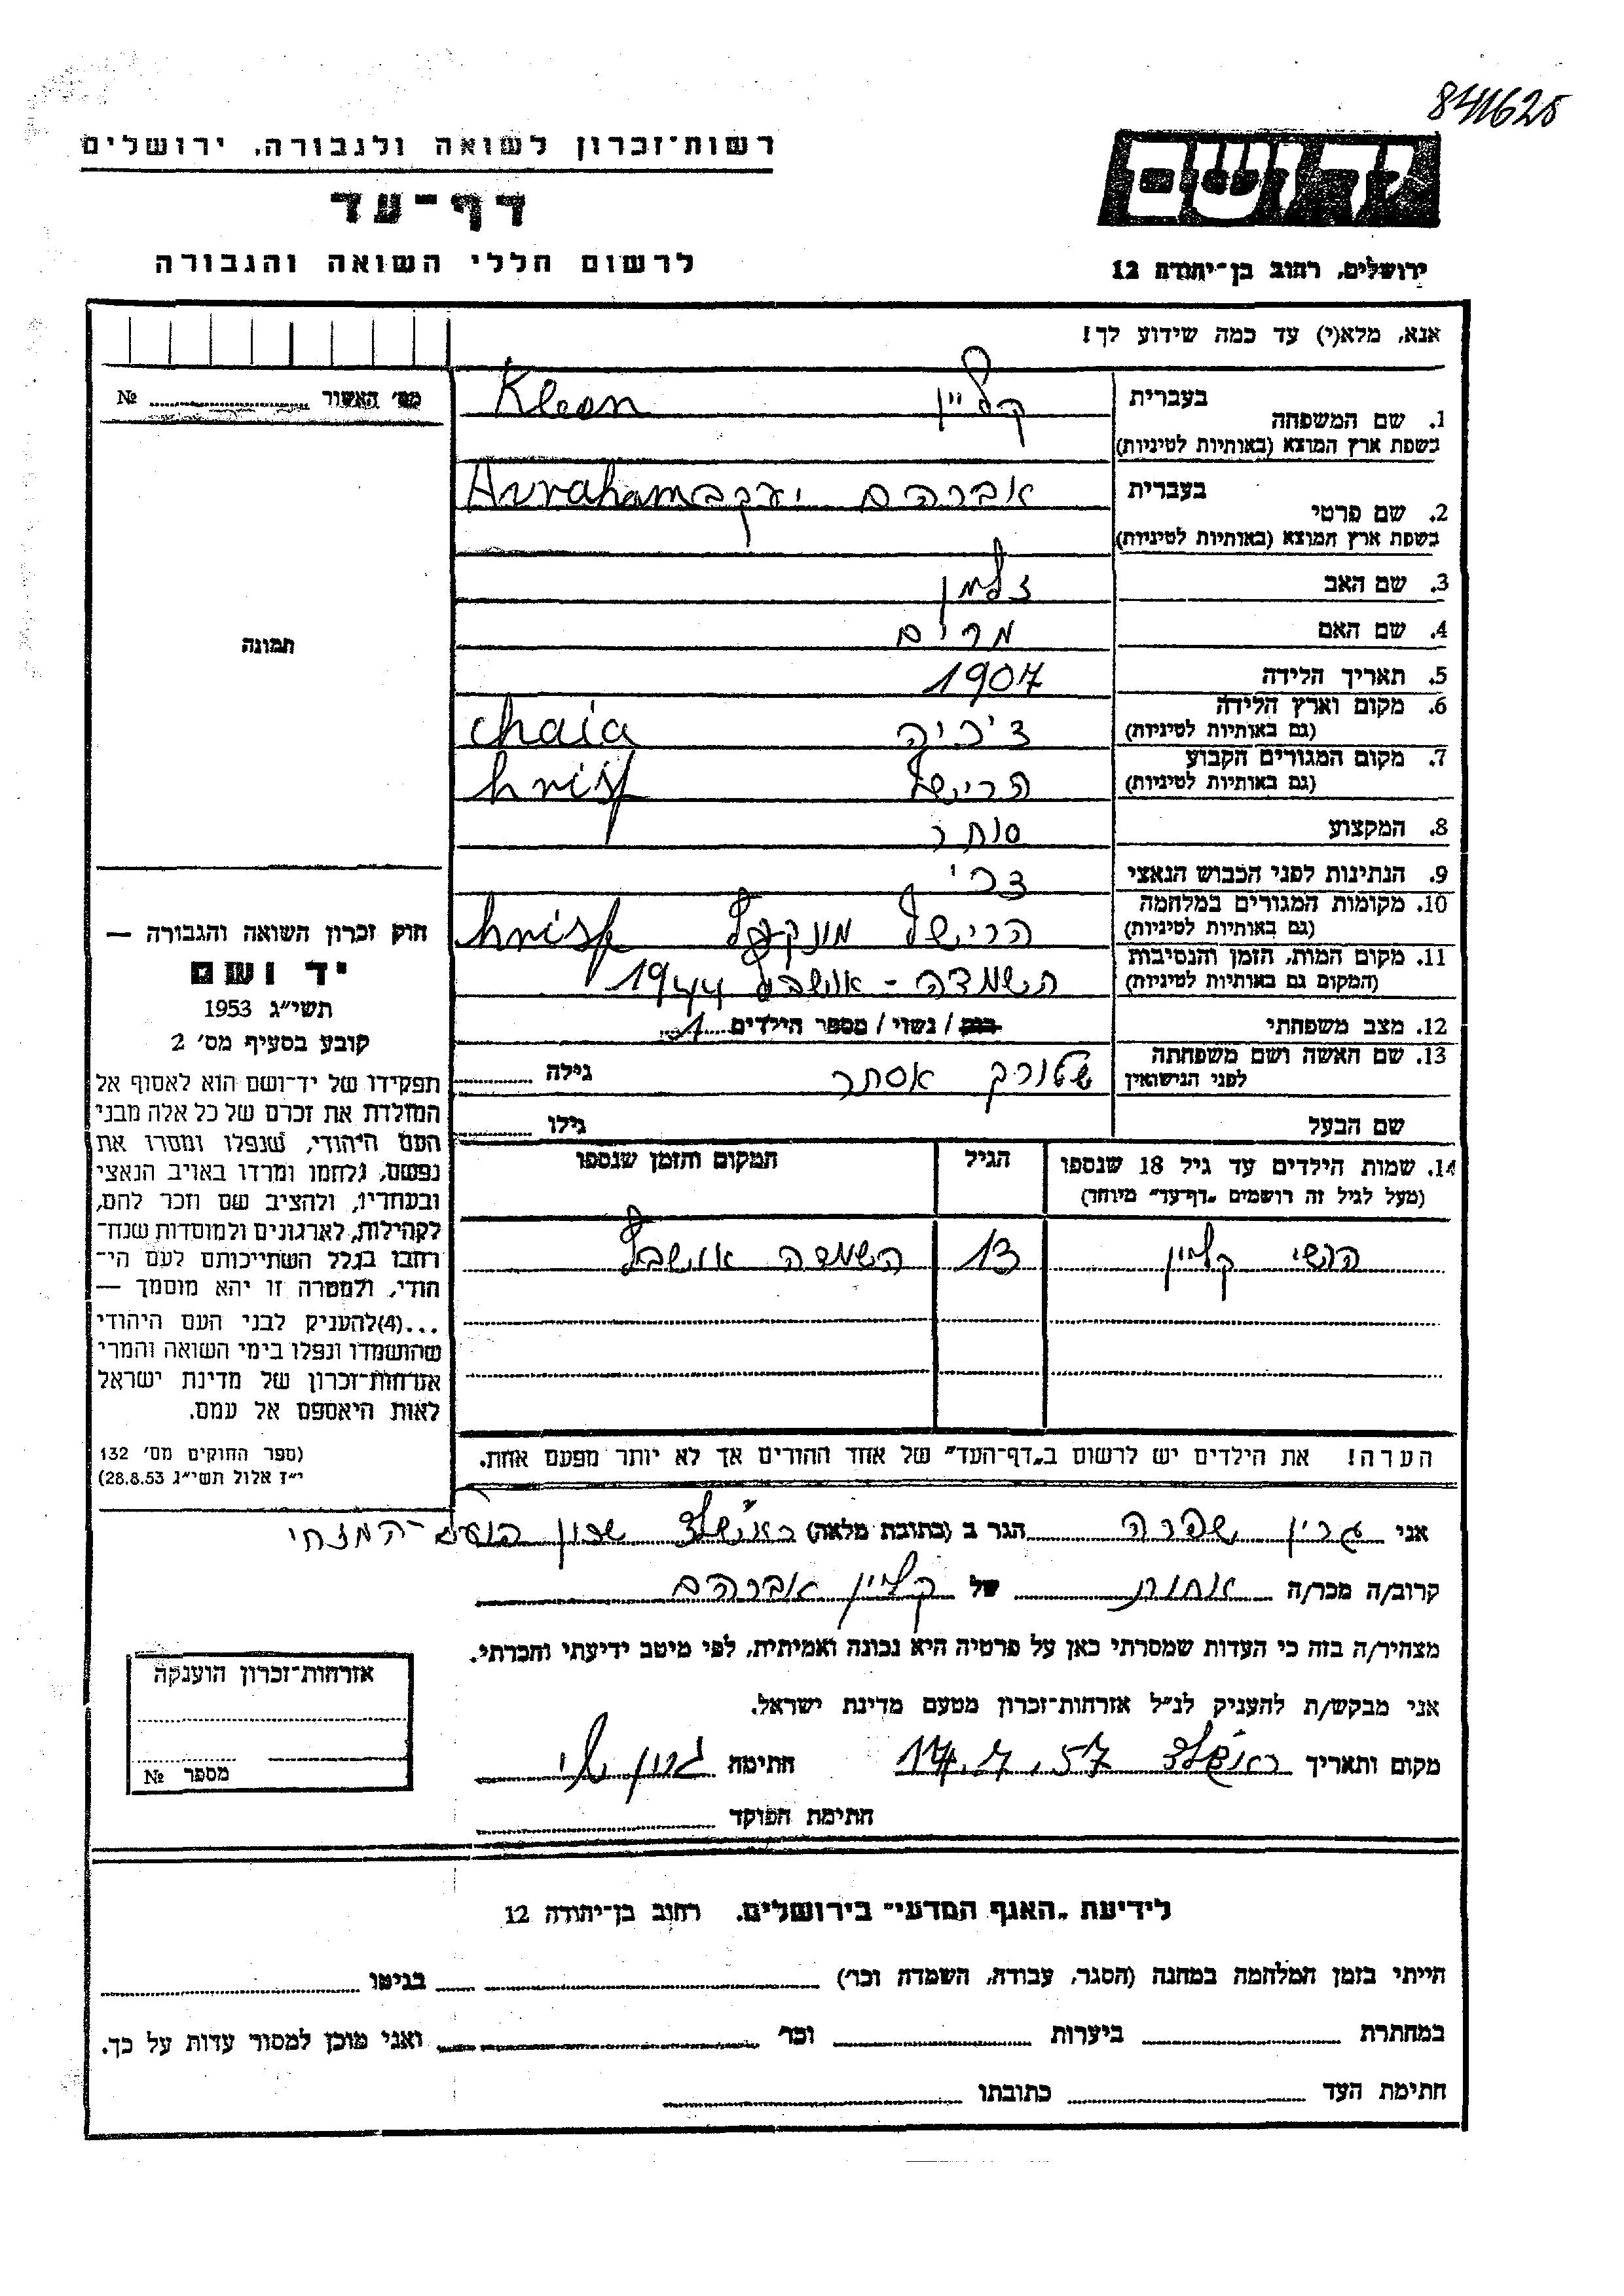 841625
רשות־זכרון לשואה ולגבורה, ירושלים
יד ושם
דף־עד
לרשום חללי השואה והגבורה
ירושלים, רחוב בן־יהודה 12
אנא, מלא(י) עד כמה שידוע לך!
מס׳ האשור № 
1. שם המשפחה בעברית קליין Kleon
בשפת ארץ המוצא (באותיות לטיניות)
2. שם פרטי בעברית אברהם יעקב Avraham
בשפת ארץ המוצא (באותיות לטיניות)
3. שם האב זלמן
4. שם האם מרים
תמונה
5. תאריך הלידה 1907
6. מקום וארץ הלידה
(גם באותיות לטיניות) צ׳כיה chaia
7. מקום המגורים הקבוע
(גם באותיות לטיניות) הרישל hrisp
8. המקצוע סוחר
9. הנתינות לפני הכבוש הנאצי צכי
10. מקומות המגורים במלחמה
(גם באותיות לטיניות) הרישל hrisp
11. מקום המות, הזמן והנסיבות
(המקום גם באותיות לטיניות) השמדה - 1944
12. מצב משפחתי רווק / נשוי / מספר הילדים 1
13. שם האשה ושם משפחתה
לפני הנישואין אסתר גילה
שם הבעל גילו
14. שמות הילדים עד גיל 18 שנספו הגיל המקום והזמן שנספו
(מעל לגיל זה רושמים „דף־עד” מיוחד)
קליין 13 השמדה
הערה! את הילדים יש לרשום ב„דף־העד” של אחד ההורים אך לא יותר מפעם אחת.
חוק זכרון השואה והגבורה —
יד ושם
תשי״ג 1953
קובע בסעיף מס׳ 2
תפקידו של יד־ושם הוא לאסוף אל
המולדת את זכרם של כל אלה מבני
העם היהודי, שנפלו ומסרו את
נפשם, נלחמו ומרדו באויב הנאצי
ובעוזריו, ולהציב שם וזכר להם,
לקהילות, לארגונים ולמוסדות שנח־
רבו בגלל השתייכותם לעם הי־
הודי, ולמטרה זו יהא מוסמך —
...(4)להעניק לבני העם היהודי
שהושמדו ונפלו בימי השואה והמרי
אזרחות־זכרון של מדינת ישראל
לאות היאספם אל עמם.
(ספר החוקים מס׳ 132
י״ז אלול תשי״ג 28.8.53)
אני גרין שפרה הגר ב (כתובת מלאה) שכון הפועל־המזרחי
קרוב/ה מכר/ה אחות של קליין אברהם
מצהיר/ה בזה כי העדות שמסרתי כאן על פרטיה היא נכונה ואמיתית, לפי מיטב ידיעתי והכרתי.
אני מבקש/ת להעניק לנ״ל אזרחות־זכרון מטעם מדינת ישראל.
מקום ותאריך 14.7.57 חתימה
חתימת הפוקד
אזרחות־זכרון הוענקה
מספר №
לידיעת „האגף המדעי” בירושלים, רחוב בן־יהודה 12
הייתי בזמן המלחמה במחנה (הסגר, עבודה, השמדה וכו׳) בגיטו
במחתרת ביערות וכו׳ ואני מוכן למסור עדות על כך.
חתימת העד כתובתו